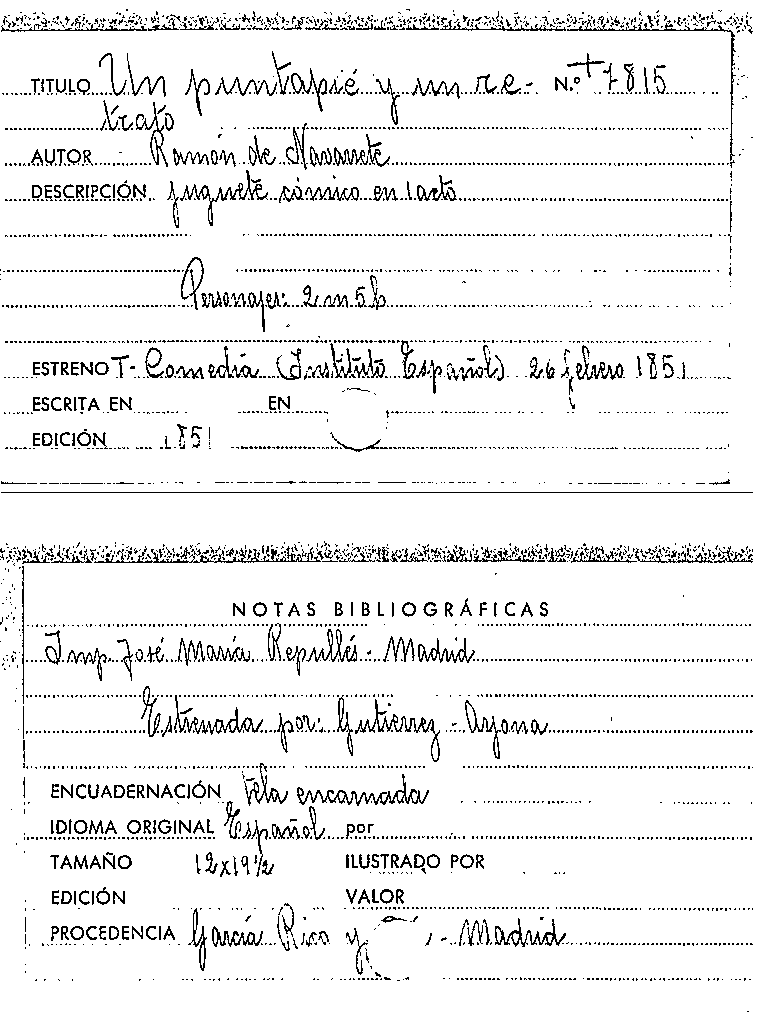 TITULO Un puntapié y un re- N.º + 7815
trato
AUTOR Ramón de Navarrete
DESCRIPCIÓN juguete cómico en 1 acto
Personajes: 2 m 5 h
ESTRENO T- Comedia (Instituto Español) 26 febrero 1851
ESCRITA EN EN
EDICIÓN 1851
NOTAS BIBLIOGRÁFICAS
Imp. José María Repullés - Madrid
Estrenada por: Gutierrez - Arjona
ENCUADERNACIÓN Tela encarnada
IDIOMA ORIGINAL Español por
TAMAÑO 12x19½ ILUSTRADO POR
EDICIÓN VALOR
PROCEDENCIA García Rico y - Madrid